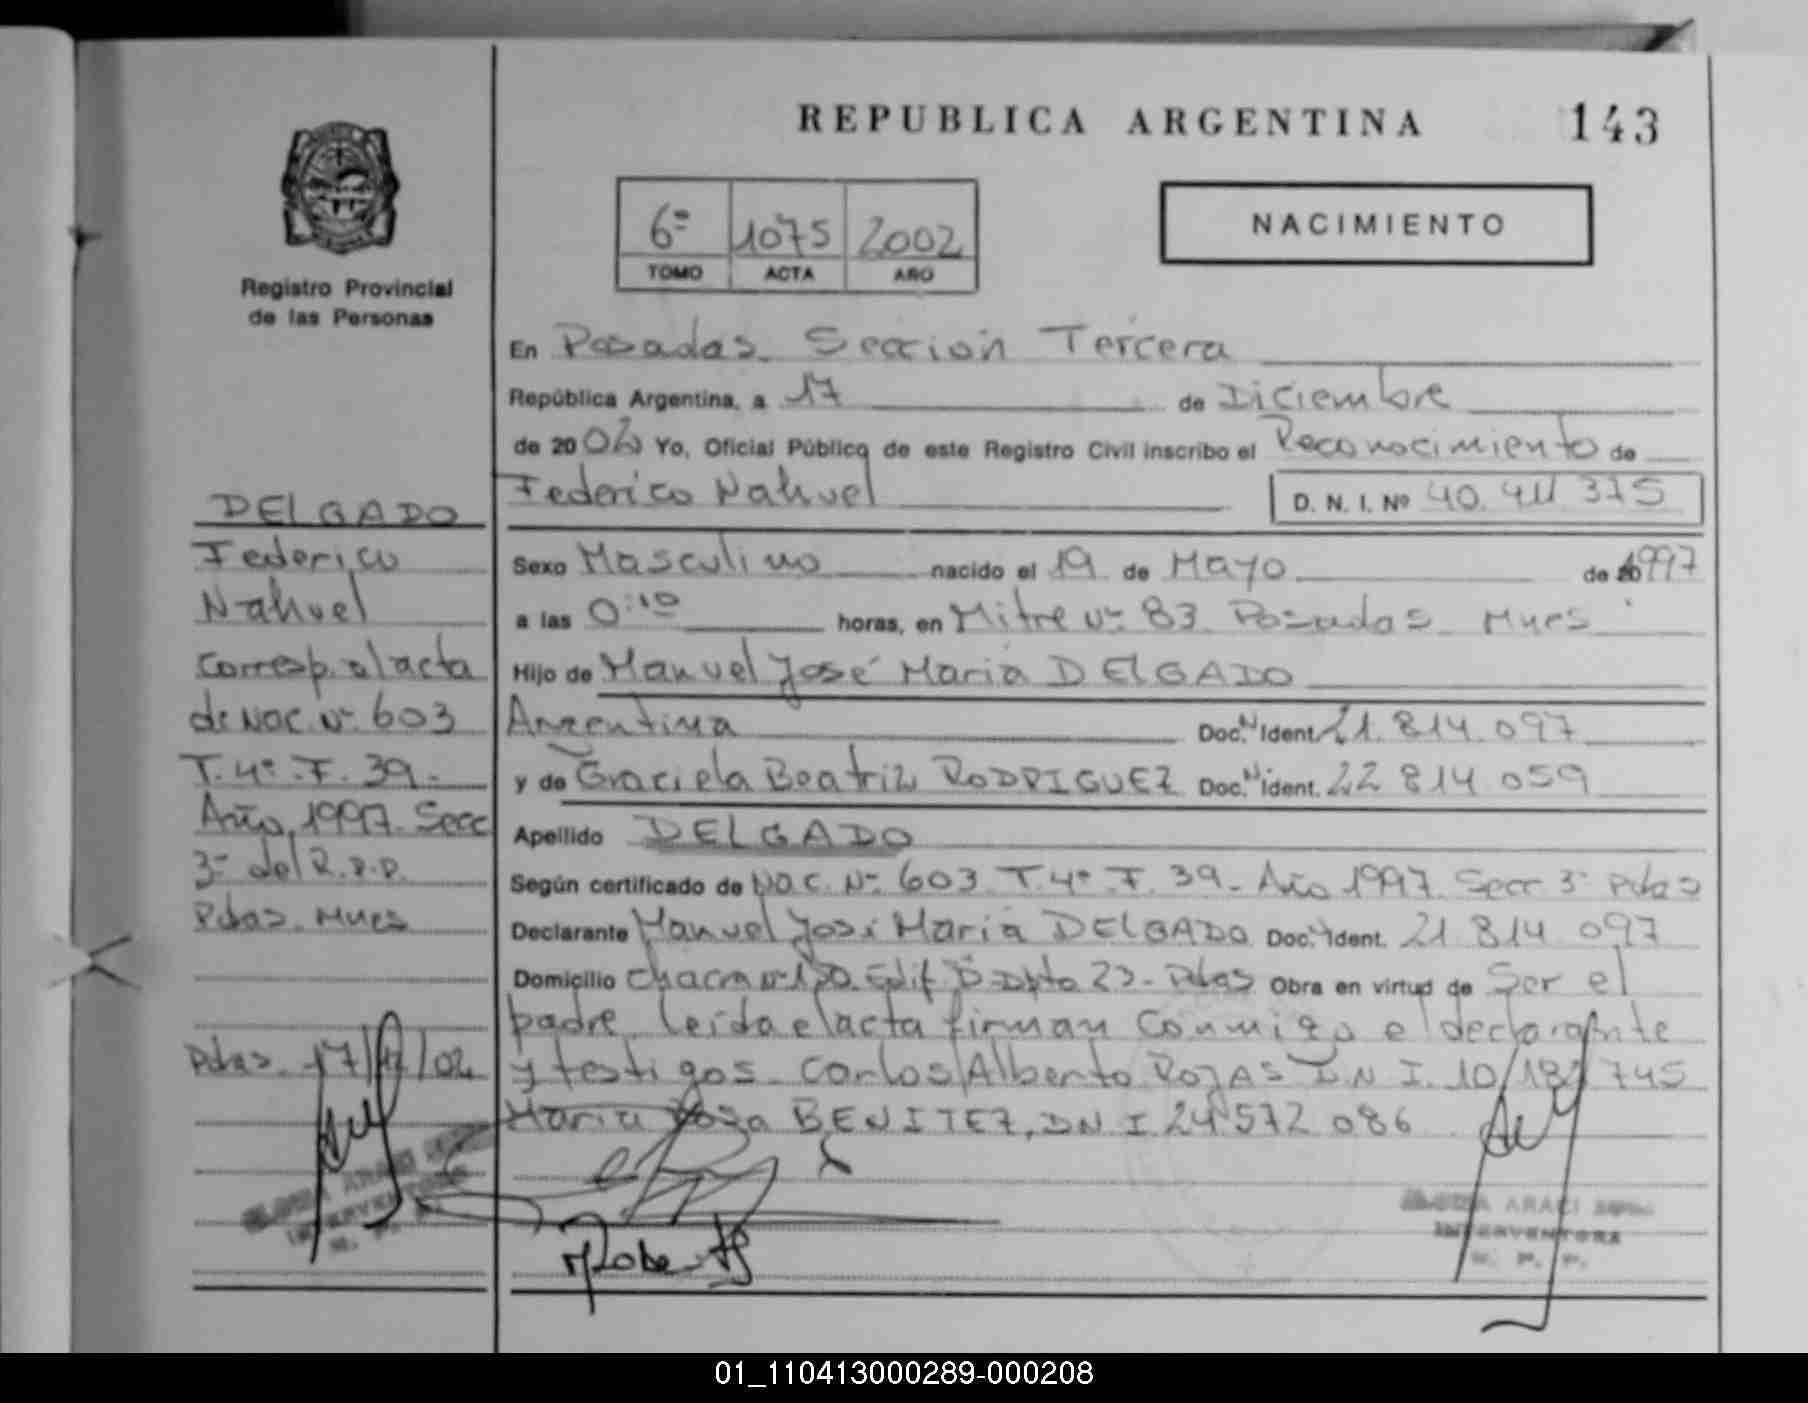 REPUBLICA ARGENTINA
143
6º 1075 2002
TOMO ACTA AÑO
NACIMIENTO
Registro Provincial
de las Personas
En Posadas Sección Tercera
República Argentina, a 17 de Diciembre
de 2002 Yo, Oficial Público de este Registro Civil inscribo el Reconocimiento de
Federico Nahuel D. N. I. Nº 40.411.375
Sexo Masculino nacido el 19 de Mayo de 1997
a las 0:10 horas, en Mitre Nº 83 Posadas Mnes
Hijo de Manuel José Maria DELGADO
Argentina Doc. N Ident. 21.814.097
y de Graciela Beatriz RODRIGUEZ Doc. N ident. 22 814 059
Apellido DELGADO
Según certificado de Nac. Nº 603 T. 4º F. 39 - Año 1997 Secc 3º Pdas
Declarante Manuel José Maria DELGADO Doc. N Ident. 21 814 097
Domicilio chacra Nº Edif Dpto 23 - Pdas Obra en virtud de Ser el
padre leida el acta firman conmigo el declarante
y testigos Carlos Alberto ROJAS D N I. 10 745
Maria Rosa BENITEZ, DN I 24 572 086
DELGADO
Federico
Nahuel
corresp. al acta
de Nac. Nº 603
T. 4º F. 39 -
Año 1997 Secc
3º del R.P.P.
Pdas. Mnes
Pdas 17/12/02
ARACI
INTERVENTORA
R. P. P.
ARACI
INTERVENTORA
R. P. P.
01_110413000289-000208